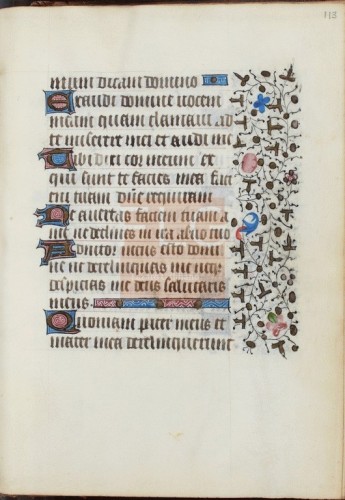 mum dicam domino
Exaudi domine vocem
meam quam clamavi ad
te miserere mei et audi me
Tibi dixi cor meum et
qui sunt te facies mea faci
em tuam dñe requiram
Ne avertas faciem tuam a
me ne declines in ira a
meus esto domi
ne ne derelinquas me neq
despicias me deus salutaris
meus
Quoniam pater meus et
mater mea derelinquerunt
118